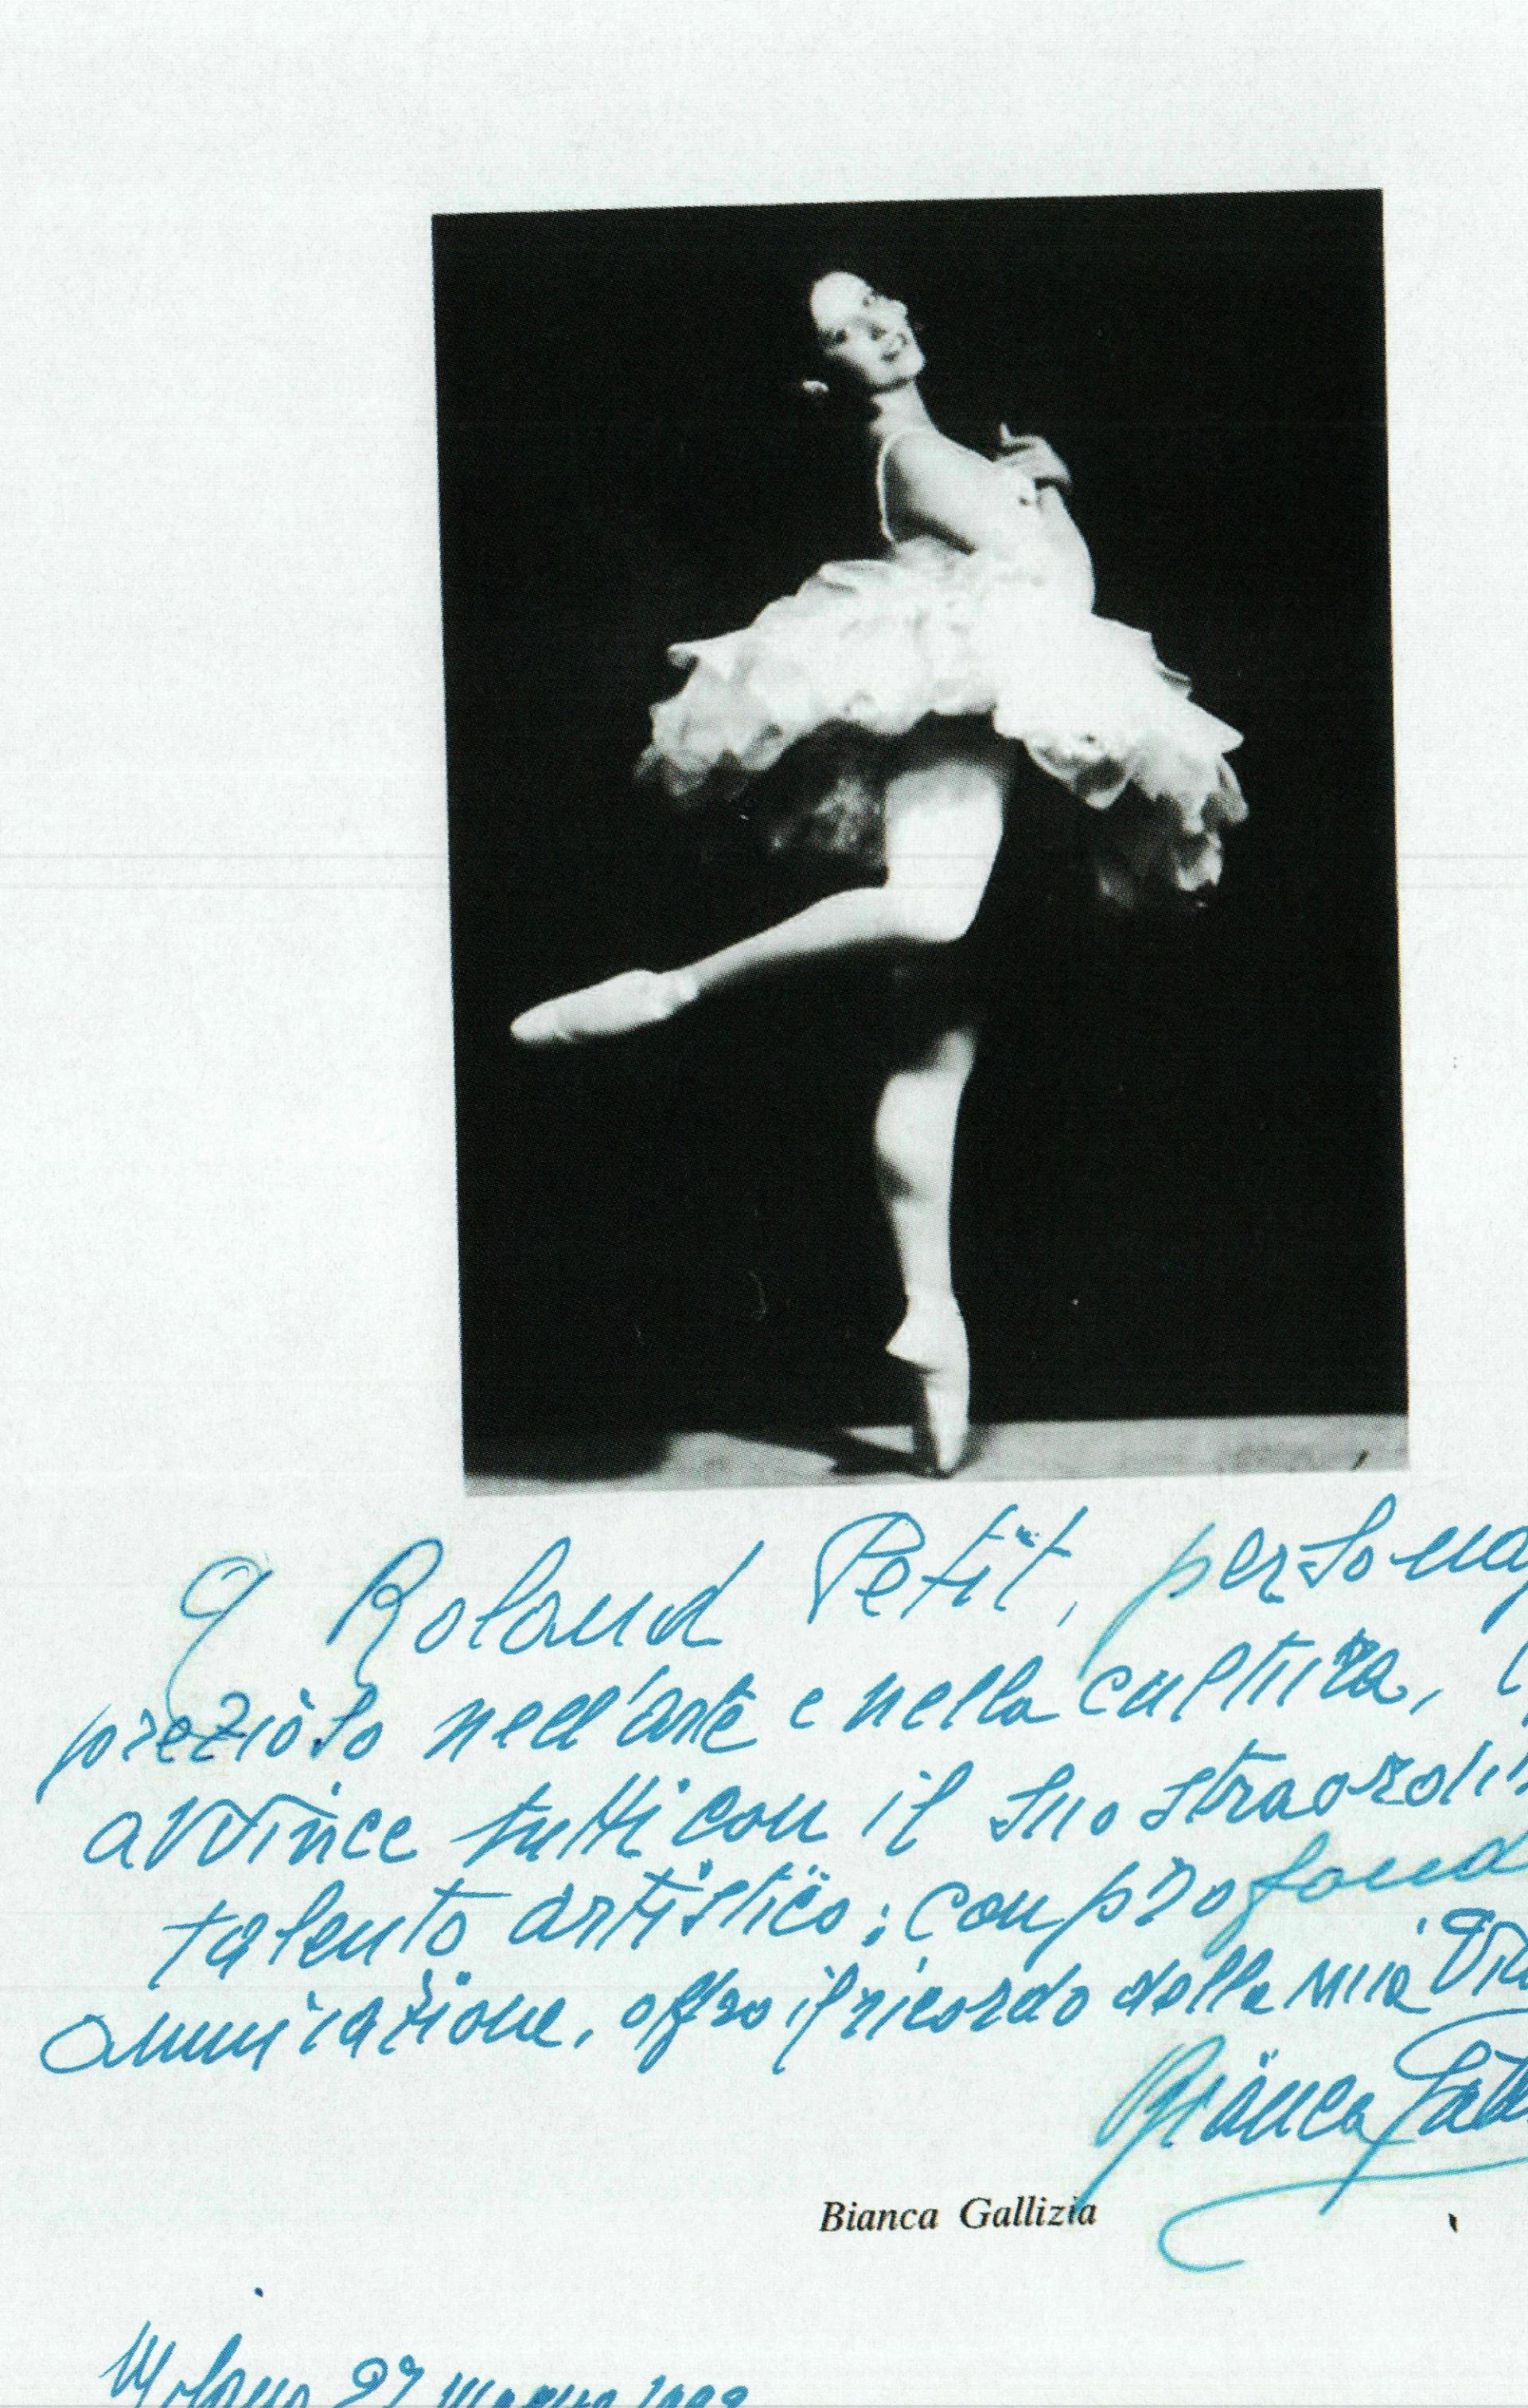 A Roland Petit, personag
prezioso nell'arte e nella cultura,
avvince tutti con il suo straordin
talento artistico; con profond
ammirazione, offro il ricordo della mia
Bianca Gall
Bianca Gallizia
Milano 27